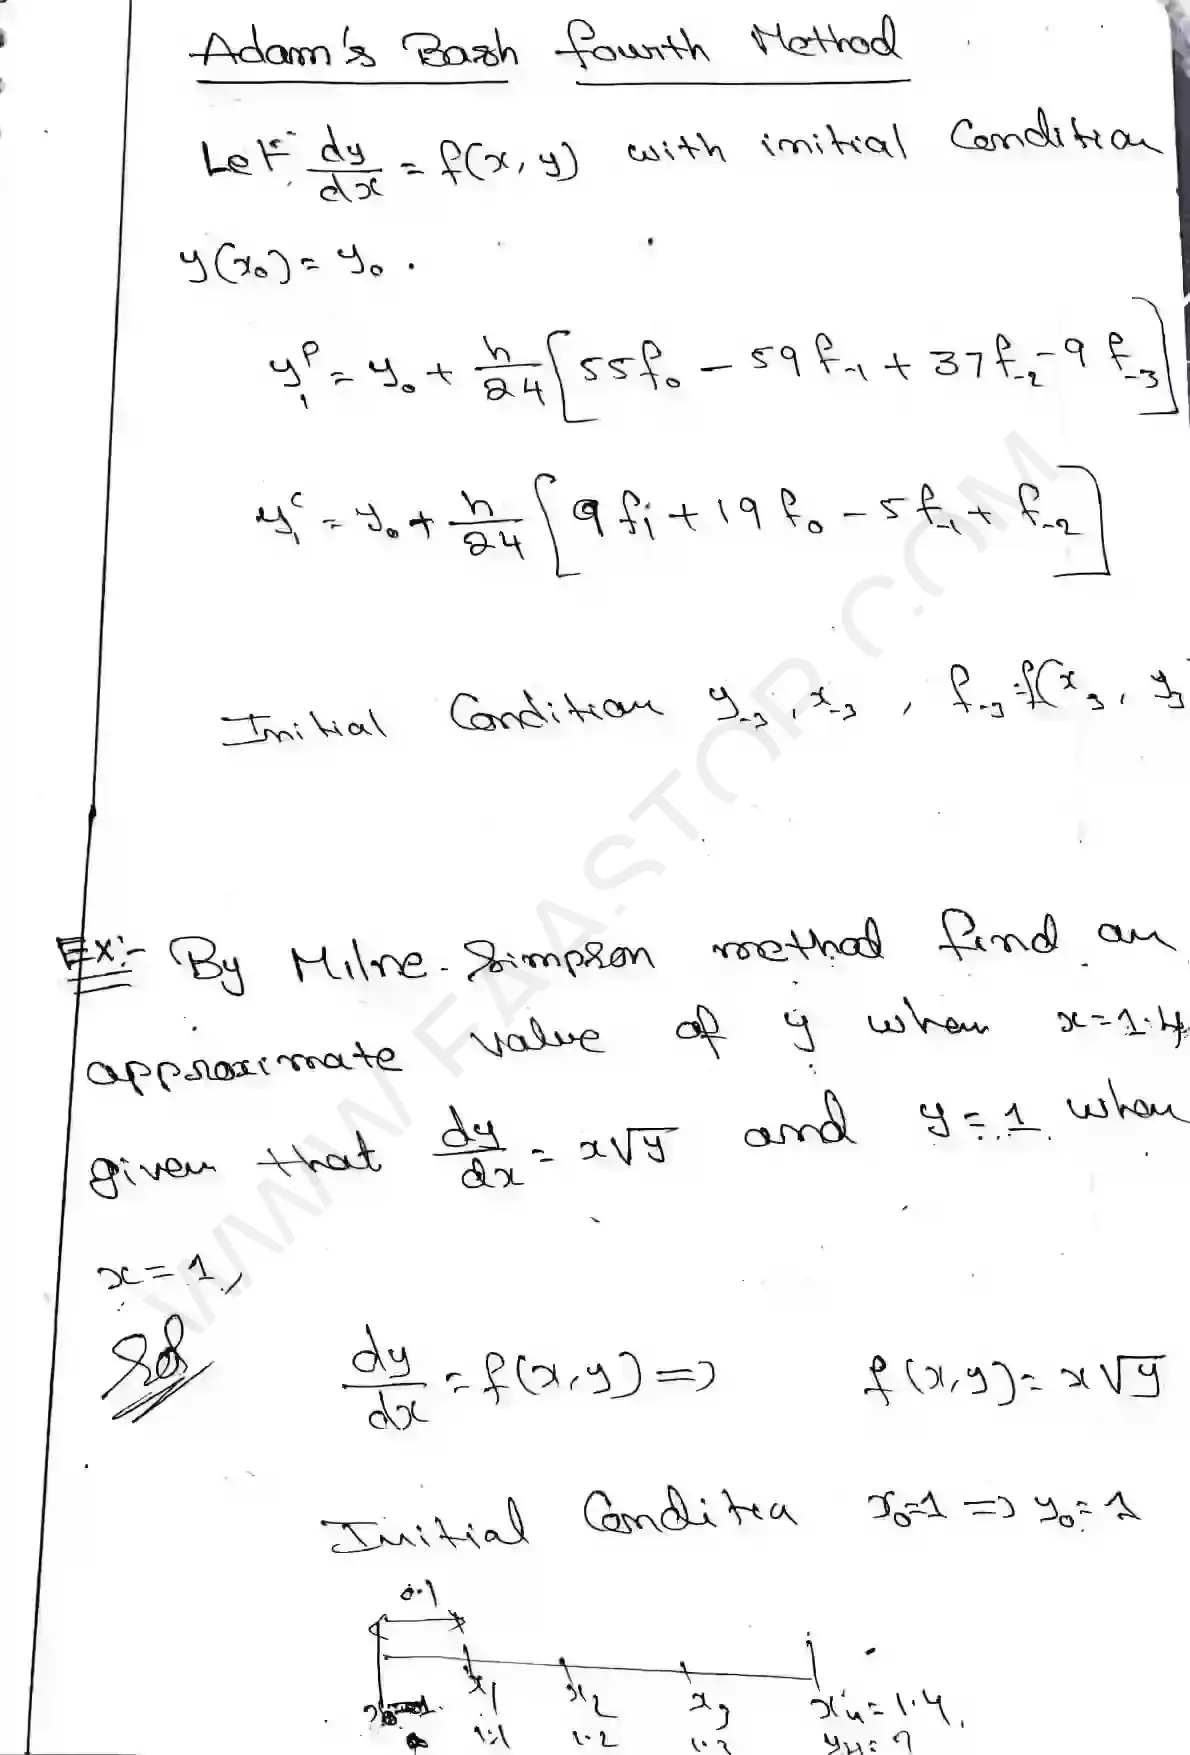 Adam's Bash fourth Method
Let dy/dx = f(x, y) with initial Condition
y(x₀) = y₀ .
y₁ᵖ = y₀ + h/24 [55f₀ - 59f₋₁ + 37f₋₂ - 9f₋₃]
y₁ᶜ = y₀ + h/24 [9f₁ + 19f₀ - 5f₋₁ + f₋₂]
Initial Condition y₋₃, x₋₃ , f₋₃ = f(x₃, y₃
Ex:- By Milne-Simpson method find an
approximate value of y when x=1.4
given that dy/dx = x√y and y=1 when
x=1,
Sol dy/dx = f(x,y) => f(x,y) = x√y
Initial Conditia x₀=1 => y₀=1
0.1
x₁ x₂ x₃ x₄=1.4,
1.1 1.2 1.3 y₄=?
WWW.FAASTOP.COM